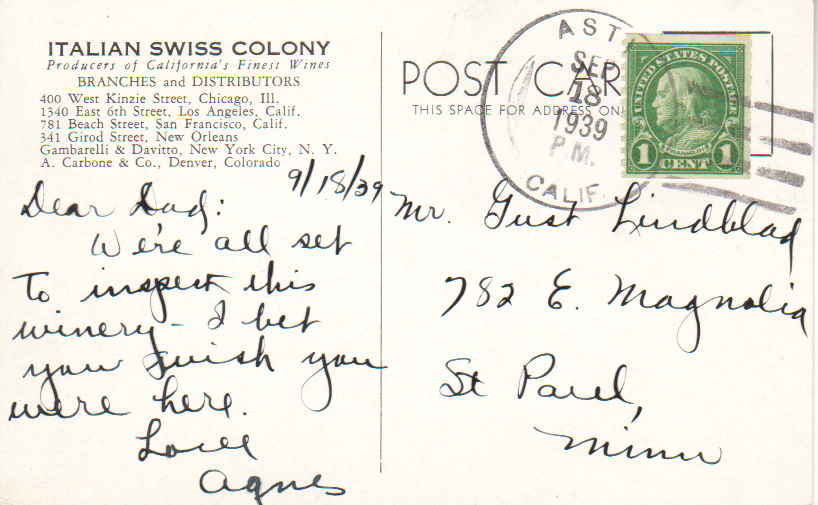 ITALIAN SWISS COLONY
Producers of California's Finest Wines
BRANCHES and DISTRIBUTORS
400 West Kinzie Street, Chicago, Ill.
1340 East 6th Street, Los Angeles, Calif.
781 Beach Street, San Francisco, Calif.
341 Girod Street, New Orleans
Gambarelli & Davitto, New York City, N. Y.
A. Carbone & Co., Denver, Colorado
9/18/39
Dear Dad:
We're all set
to inspect this
winery – I bet
you wish you
were here.
Love
Agnes
POST CAR
THIS SPACE FOR ADDRESS ON
AST
SEP
18
1939
P.M.
CALIF.
UNITED STATES POSTAGE
FRANKLIN
1 CENT 1
Mr. Gust Lindblad
782 E. Magnolia
St Paul,
Minn